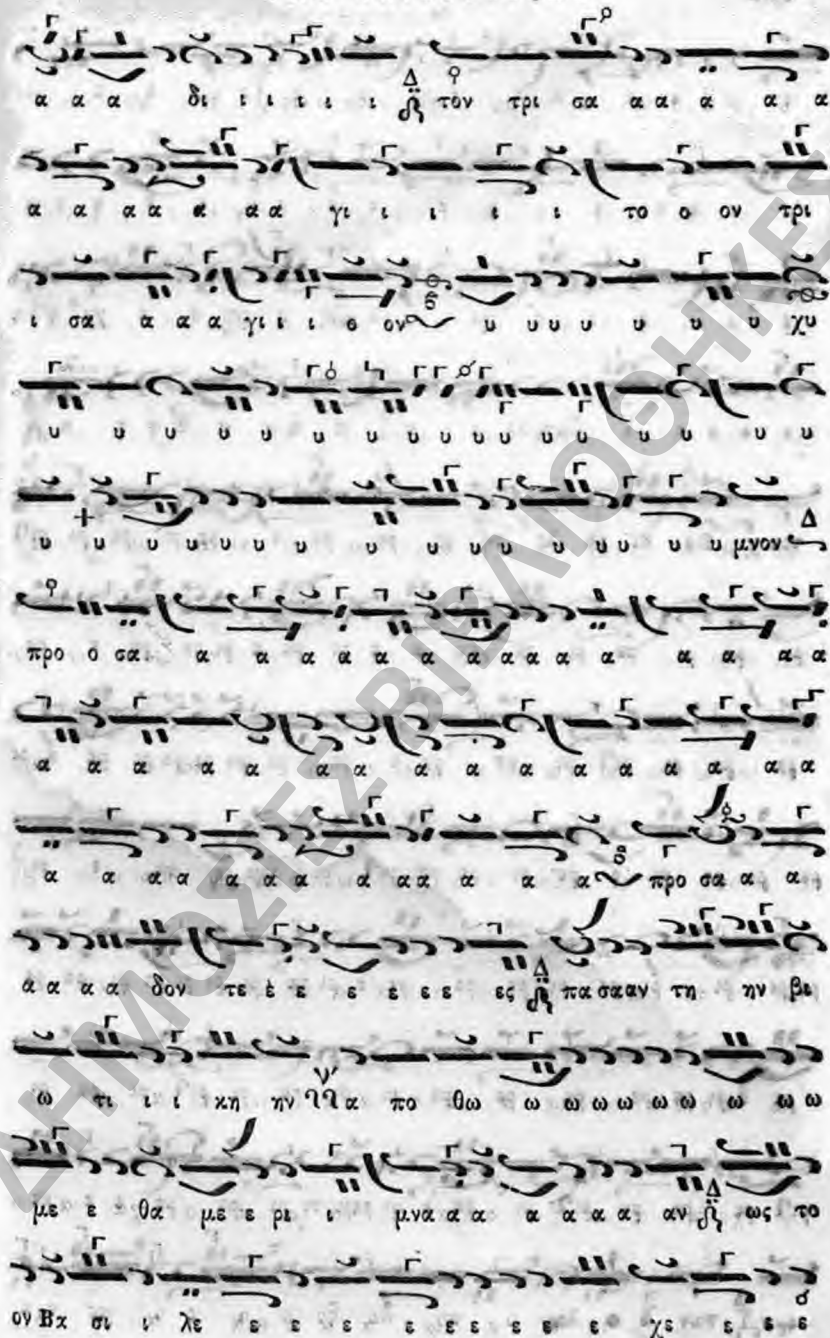 α α α δι ι ι ι ι ι Δ τὸν τρι σα α α α α α
α α α α α α α γι ι ι ι ι το ο ον τρι
ι σα α α α γι ι ι ο ον υ υ υ υ υ υ υ χυ
υ υ υ υ υ υ υ υ υ υ υ υ υ υ υ υ
υ υ υ υ υ υ υ υ υ υ υ υ υ υ υ μνον Δ
προ ο σα α α α α α α α α α α α α α α
α α α α α α α α α α α α α α α α
α α α α α α α α α α α α α προ σα α α
α α α α δον τε ε ε ε ε ε ε ες Δ πα σααν τη ην βι
ω τι ι ι κη ην α πο θω ω ω ω ω ω ω ω ω
με ε θα με ε ρι ι μνα α α α α α α αν Δ ως το
ον Βα σι ι λε ε ε ε ε ε ε ε ε χε ε ε ε
ΔΗΜΟΣΙΕΣ ΒΙΒΛΙΟΘΗΚΕΣ